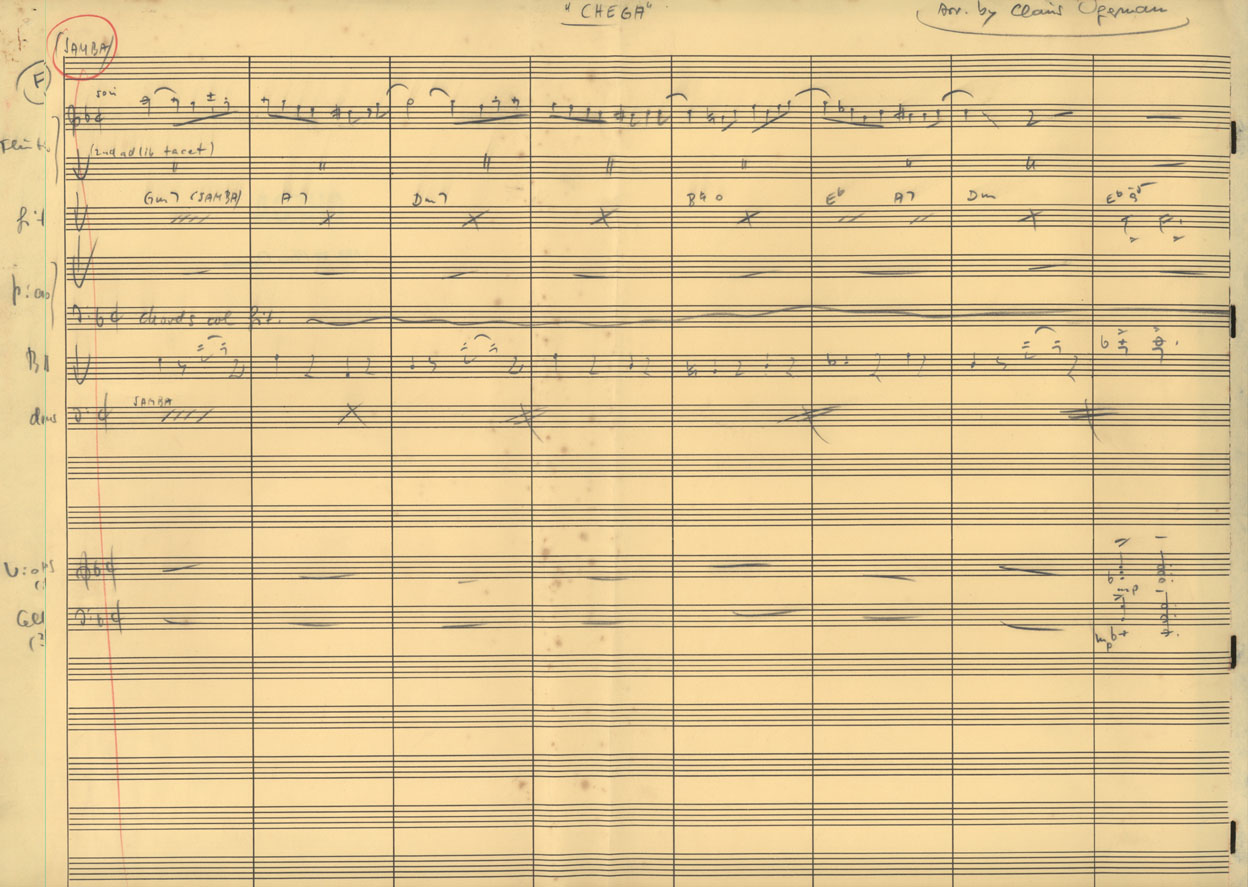 "CHEGA"
Arr. by Claus Ogerman
(SAMBA)
F
soli
(2nd ad lib tacet)
Gm7 (SAMBA) A7 Dm7 B♮o E♭ A7 Dm E♭9-5
git
piano
chords col git.
drms
SAMBA
Cell
mp
mp